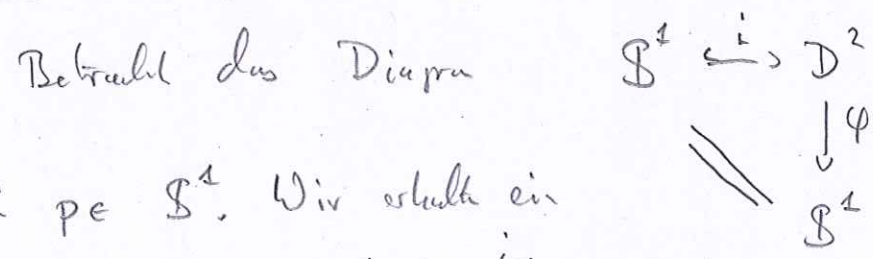 Betracht das Diagra S¹ ↪ⁱ D²
↓ φ
p ∈ S¹. Wir erhalte ein S¹